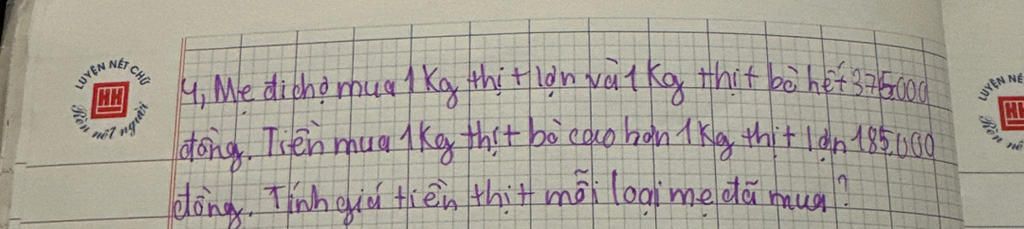 LUYỆN NÉT CHỮ
HH
Rèn nết người
4, Mẹ đi chợ mua 1 Kg thịt lợn và 1 Kg thịt bò hết 375.000
đồng. Tiền mua 1 Kg thịt bò cao hơn 1 Kg thịt lợn 185.000
đồng. Tính giá tiền thịt mỗi loại mẹ đã mua?
LUYỆN NÉ